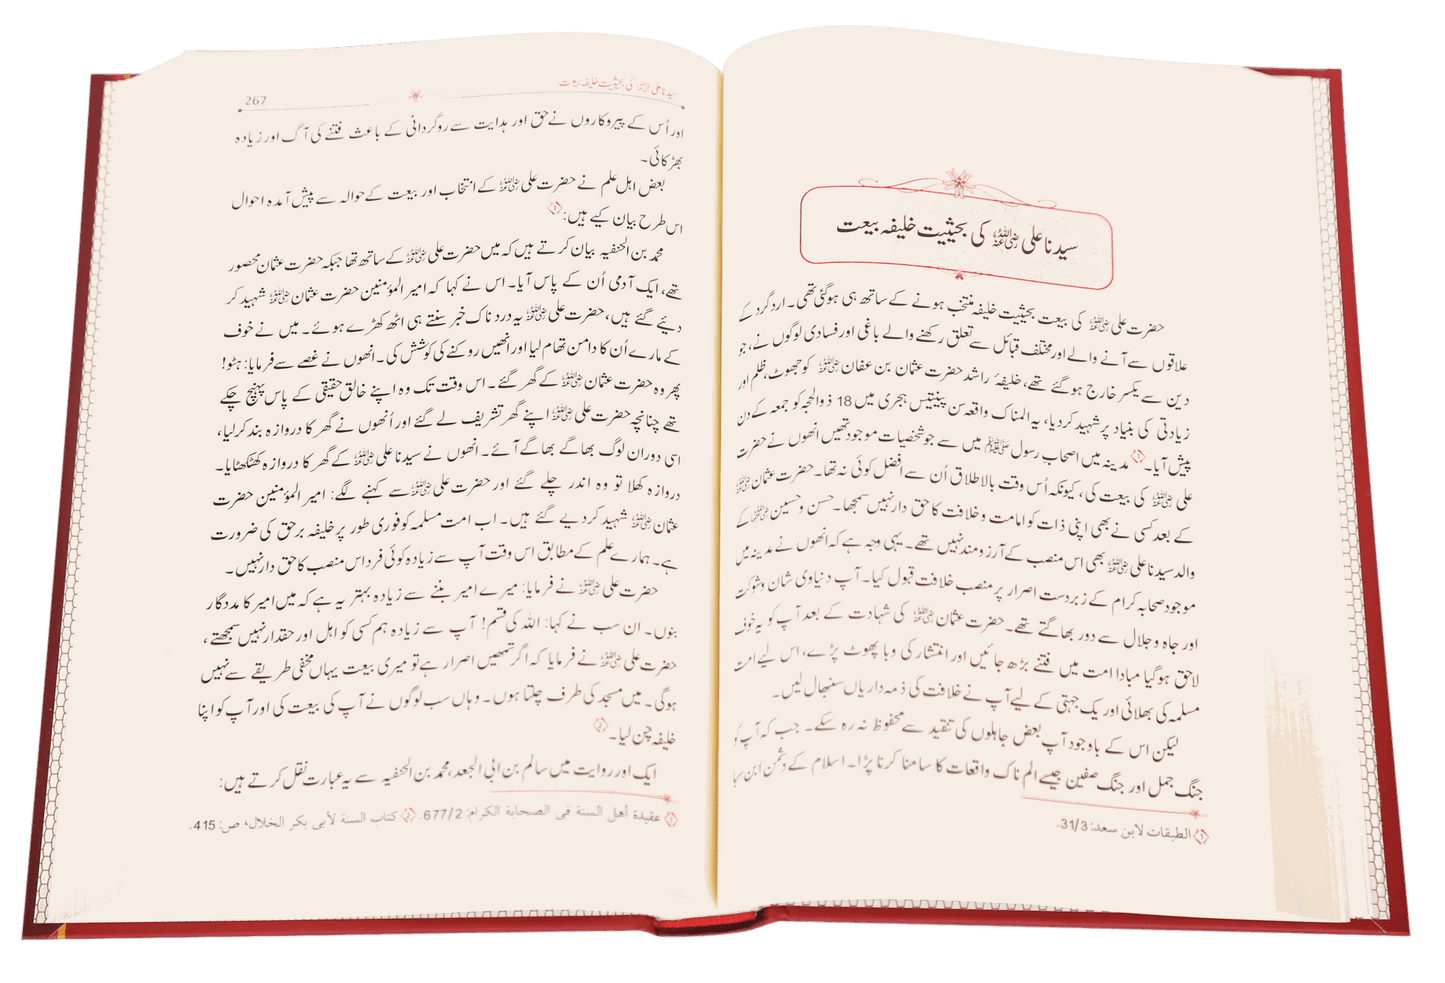 سیدنا علی رضی اللہ عنہ کی بحیثیت خلیفہ بیعت
حضرت علی رضی اللہ عنہ کی بیعت بحیثیت خلیفہ منتخب ہونے کے ساتھ ہی ہوگئی تھی۔ اردگرد کے
علاقوں سے آنے والے اور مختلف قبائل سے تعلق رکھنے والے باغی اور فسادی لوگوں نے، جو
دین سے یکسر خارج ہو گئے تھے، خلیفۂ راشد حضرت عثمان بن عفان رضی اللہ عنہ کو جھوٹ، ظلم اور
زیادتی کی بنیاد پر شہید کر دیا، یہ المناک واقعہ سن پینتیس ہجری میں 18 ذوالحجہ کو جمعہ کے دن
پیش آیا۔ ① مدینہ میں اصحاب رسول ﷺ میں سے جو شخصیات موجود تھیں انھوں نے حضرت
علی رضی اللہ عنہ کی بیعت کی، کیونکہ اُس وقت بالاطلاق اُن سے افضل کوئی نہ تھا۔ حضرت عثمان رضی اللہ عنہ
کے بعد کسی نے بھی اپنی ذات کو امامت و خلافت کا حق دار نہیں سمجھا۔ حسن و حسین رضی اللہ عنہما کے
والد سیدنا علی رضی اللہ عنہ بھی اس منصب کے آرزو مند نہیں تھے۔ یہی وجہ ہے کہ انھوں نے مدینہ میں
موجود صحابہ کرام کے زبردست اصرار پر منصب خلافت قبول کیا۔ آپ دنیاوی شان و شوکت
اور جاہ و جلال سے دور بھاگتے تھے۔ حضرت عثمان رضی اللہ عنہ کی شہادت کے بعد آپ کو یہ خوف
لاحق ہو گیا مبادا امت میں فتنے بڑھ جائیں اور انتشار کی وبا پھوٹ پڑے، اس لیے امت
مسلمہ کی بھلائی اور یک جہتی کے لیے آپ نے خلافت کی ذمہ داریاں سنبھال لیں۔
لیکن اس کے باوجود آپ بعض جاہلوں کی تنقید سے محفوظ نہ رہ سکے۔ جب کہ آپ کو
جنگ جمل اور جنگ صفین جیسے الم ناک واقعات کا سامنا کرنا پڑا۔ اسلام کے دشمن ابن سبا
① الطبقات لابن سعد: 31/3.
سیدنا علی رضی اللہ عنہ کی بحیثیت خلیفہ بیعت
267
اور اُس کے پیروکاروں نے حق اور ہدایت سے روگردانی کے باعث فتنے کی آگ اور زیادہ
بھڑکائی۔
بعض اہل علم نے حضرت علی رضی اللہ عنہ کے انتخاب اور بیعت کے حوالہ سے پیش آمدہ احوال
اس طرح بیان کیے ہیں: ①
محمد بن الحنفیہ بیان کرتے ہیں کہ میں حضرت علی رضی اللہ عنہ کے ساتھ تھا جبکہ حضرت عثمان محصور
تھے، ایک آدمی اُن کے پاس آیا۔ اس نے کہا کہ امیر المؤمنین حضرت عثمان رضی اللہ عنہ شہید کر
دیے گئے ہیں، حضرت علی رضی اللہ عنہ یہ درد ناک خبر سنتے ہی اٹھ کھڑے ہوئے۔ میں نے خوف
کے مارے اُن کا دامن تھام لیا اور انھیں روکنے کی کوشش کی۔ انھوں نے غصے سے فرمایا: ہٹو!
پھر وہ حضرت عثمان رضی اللہ عنہ کے گھر گئے۔ اس وقت تک وہ اپنے خالق حقیقی کے پاس پہنچ چکے
تھے چنانچہ حضرت علی رضی اللہ عنہ اپنے گھر تشریف لے گئے اور اُنھوں نے گھر کا دروازہ بند کر لیا،
اسی دوران لوگ بھاگے بھاگے آئے۔ انھوں نے سیدنا علی رضی اللہ عنہ کے گھر کا دروازہ کھٹکھٹایا۔
دروازہ کھلا تو وہ اندر چلے گئے اور حضرت علی رضی اللہ عنہ سے کہنے لگے: امیر المؤمنین حضرت
عثمان رضی اللہ عنہ شہید کر دیے گئے ہیں۔ اب امت مسلمہ کو فوری طور پر خلیفہ برحق کی ضرورت
ہے۔ ہمارے علم کے مطابق اس وقت آپ سے زیادہ کوئی فرد اس منصب کا حق دار نہیں۔
حضرت علی رضی اللہ عنہ نے فرمایا: میرے امیر بننے سے زیادہ بہتر یہ ہے کہ میں امیر کا مددگار
بنوں۔ ان سب نے کہا: اللہ کی قسم! آپ سے زیادہ ہم کسی کو اہل اور حقدار نہیں سمجھتے،
حضرت علی رضی اللہ عنہ نے فرمایا کہ اگر تمھیں اصرار ہے تو میری بیعت یہاں مخفی طریقے سے نہیں
ہوگی۔ میں مسجد کی طرف چلتا ہوں۔ وہاں سب لوگوں نے آپ کی بیعت کی اور آپ کو اپنا
خلیفہ چن لیا۔ ②
ایک اور روایت میں سالم بن ابی الجعد، محمد بن الحنفیہ سے یہ عبارت نقل کرتے ہیں:
① عقيدة أهل السنة في الصحابة الكرام: 677/2. ② كتاب السنة لأبي بكر الخلال، ص: 415.